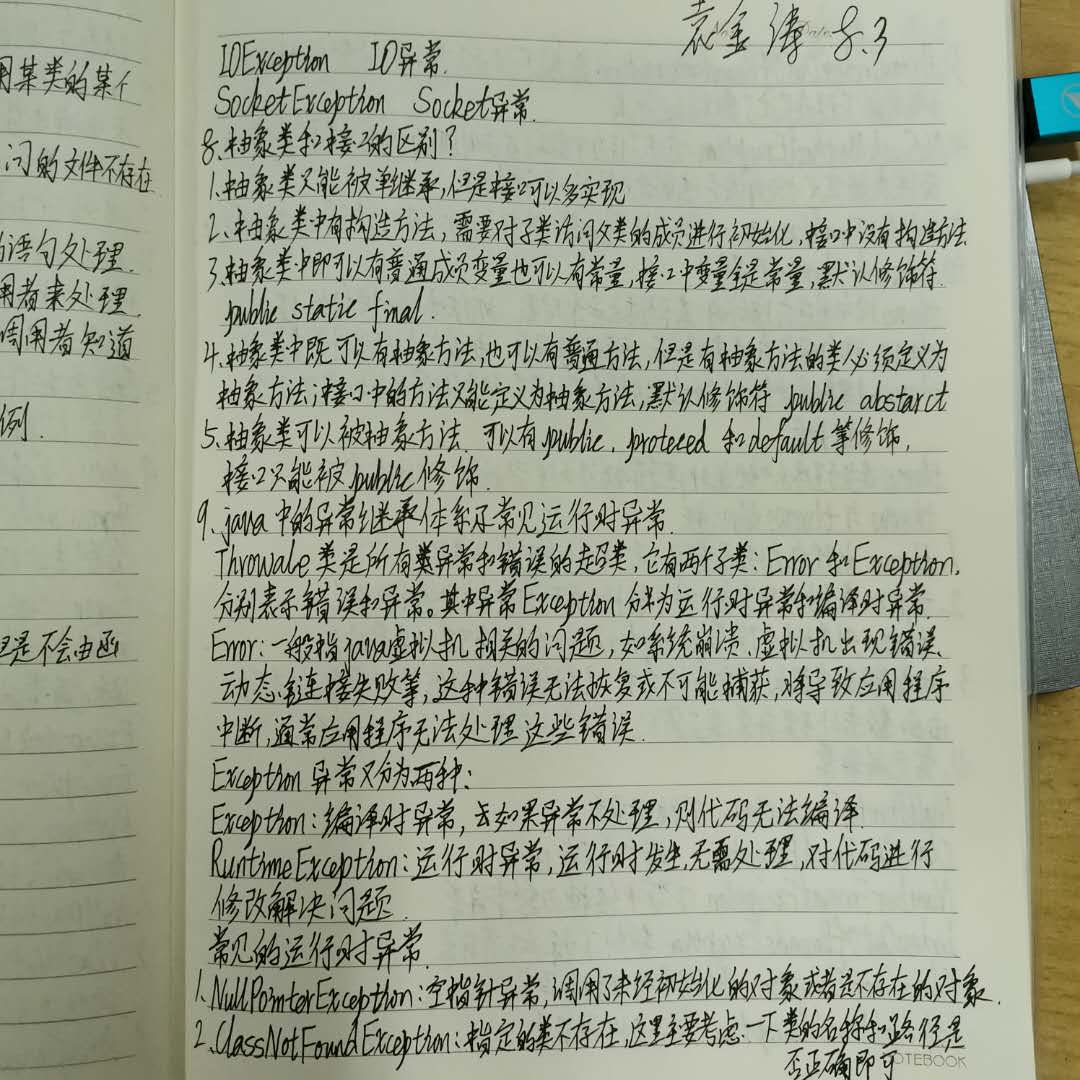 袁金涛 8.3
用某类的某个
问的文件不存在
的语句处理.
用者来处理.
调用者知道
例.
但是不会由函
IOException IO异常.
SocketException Socket异常.
8.抽象类和接口的区别?
1.抽象类只能被单继承,但是接口可以多实现
2.抽象类中有构造方法,需要对子类访问父类的成员进行初始化,接口中没有构造方法
3.抽象类中即可以有普通成员变量也可以有常量,接口中变量全是常量,默认修饰符.
public static final.
4.抽象类中既可以有抽象方法,也可以有普通方法,但是有抽象方法的类必须定义为
抽象方法;接口中的方法只能定义为抽象方法,默认修饰符 public abstarct
5.抽象类可以被抽象方法.可以有public.proteced 和default等修饰,
接口只能被public修饰.
9.java中的异常继承体系及常见运行时异常.
Throwale类是所有类异常和错误的超类,它有两个子类:Error和Exception,
分别表示错误和异常。其中异常Exception 分为运行时异常和编译时异常.
Error:一般指java虚拟机相关的问题,如系统崩溃.虚拟机出现错误、
动态链接失败等,这种错误无法恢复或不可能捕获,将导致应用程序
中断,通常应用程序无法处理这些错误.
Exception 异常又分为两种:
Exception:编译时异常,如果异常不处理,则代码无法编译.
RuntimeException:运行时异常,运行时发生,无需处理,对代码进行
修改解决问题.
常见的运行时异常.
1.NullPointerException:空指针异常,调用了未经初始化的对象或者是不存在的对象.
2.ClassNotFoundException:指定的类不存在,这里主要考虑一下类的名称和路径是
否正确即可
NOTEBOOK